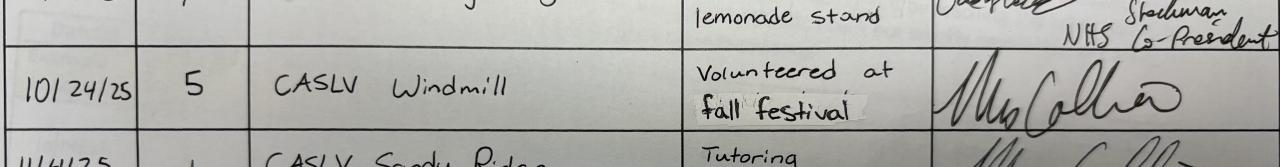 lemonade stand
Stechman
NHS Co-President
10/24/25 5 CASLV Windmill Volunteered at
fall festival
CASLV Sandy Ridge Tutoring